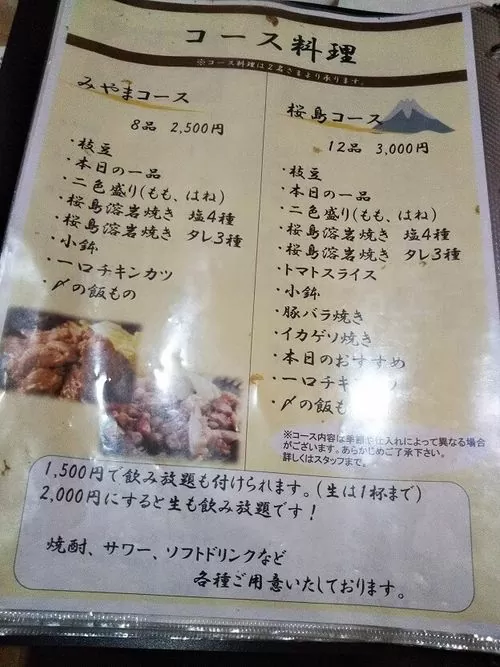 コース料理
※コース料理は2名さまより承ります。
みやまコース
8品 2,500円
・枝豆
・本日の一品
・二色盛り(もも、はね)
・桜島溶岩焼き 塩4種
・桜島溶岩焼き タレ3種
・小鉢
・一口チキンカツ
・〆の飯もの
桜島コース
12品 3,000円
・枝豆
・本日の一品
・二色盛り(もも、はね)
・桜島溶岩焼き 塩4種
・桜島溶岩焼き タレ3種
・トマトスライス
・小鉢
・豚バラ焼き
・イカゲソ焼き
・本日のおすすめ
・一口チキ
・〆の飯も
※コース内容は季節や仕入れによって異なる場合
がございます。あらかじめご了承下さい。
詳しくはスタッフまで。
1,500円で飲み放題も付けられます。(生は1杯まで)
2,000円にすると生も飲み放題です!
焼酎、サワー、ソフトドリンクなど
各種ご用意いたしております。